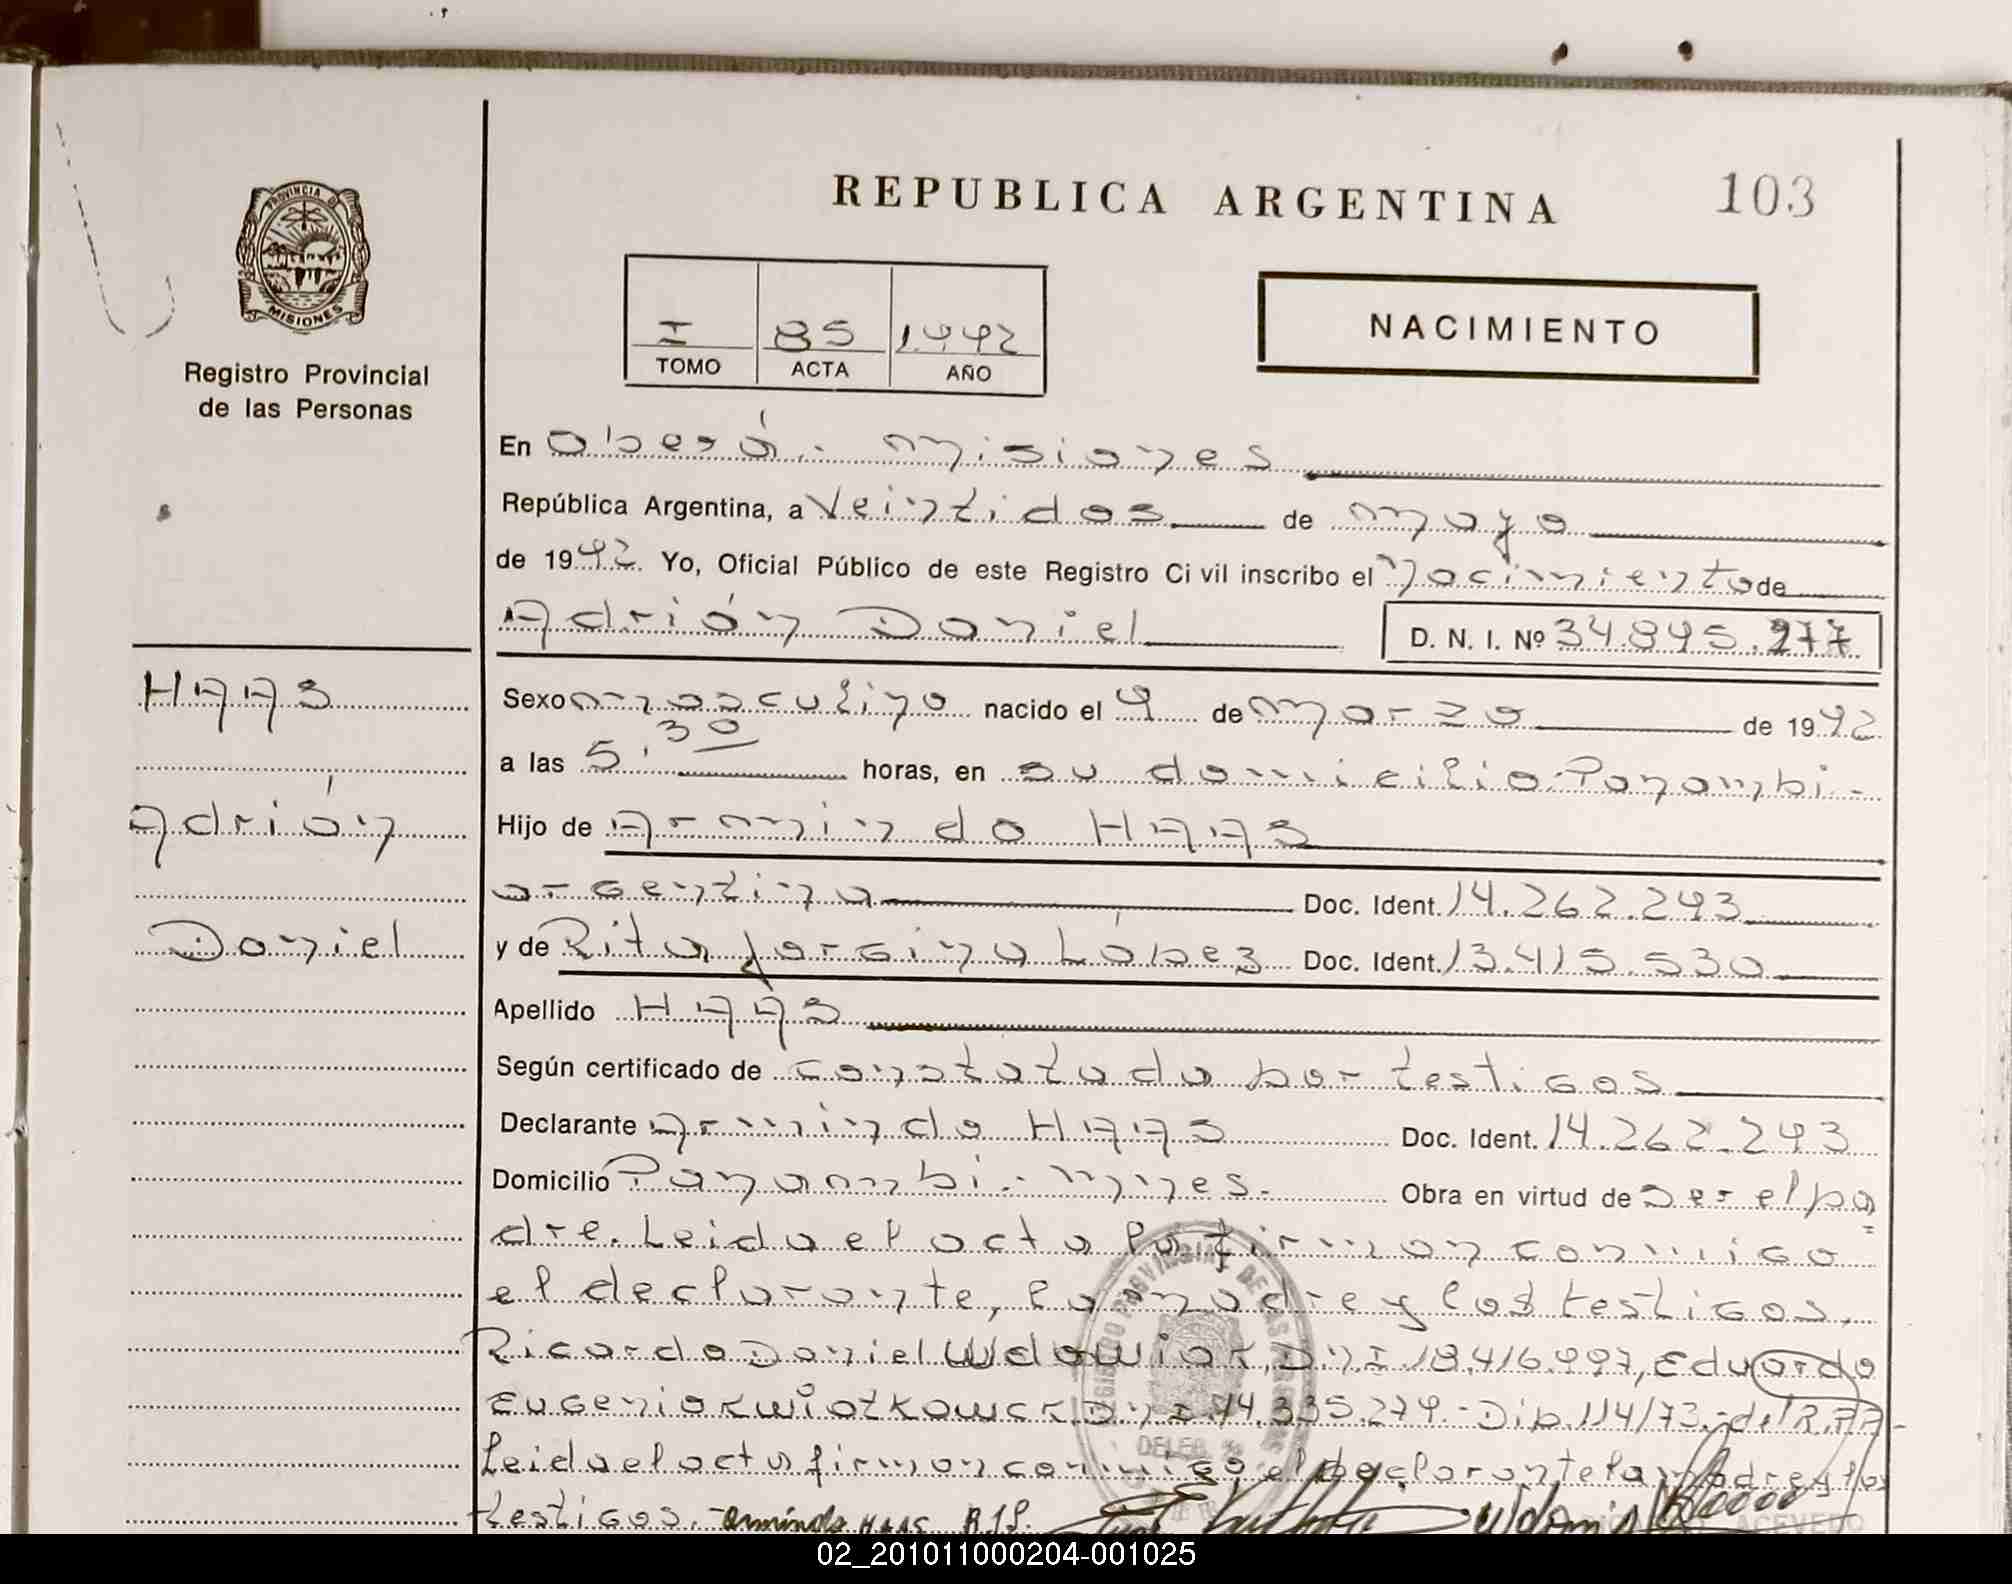 REPUBLICA ARGENTINA
103
PROVINCIA DE
MISIONES
Registro Provincial
de las Personas
I 85 1992
TOMO ACTA AÑO
NACIMIENTO
En Oberá.- Misiones
República Argentina, a Veintidos de mayo
de 1992. Yo, Oficial Público de este Registro Civil inscribo el Nacimiento de
Adrián Daniel D. N. I. Nº 34.895.977
HAAS
Adrián
Daniel
Sexo masculino nacido el 9 de marzo de 1992
a las 5,30 horas, en su domicilio-Panambi-
Hijo de Armindo HAAS
argentino Doc. Ident. 14.262.293
y de Rita Jorgina López Doc. Ident. 13.415.530
Apellido HAAS
Según certificado de constatado por testigos
Declarante Armindo HAAS Doc. Ident. 14.262.293
Domicilio Panambi.- Mnes.- Obra en virtud de ser el pa
dre. Leida el acta la firman conmigo
el declarante, la madre y los testigos,
Ricardo Daniel Wdowiak, DNI 18.416.997, Eduardo
Eugenio Kwiatkowsk DNI 14.335.279.- Dip. 114/73.- del R.PP.-
Leida el acta firman conmigo el declarante la madre y los
testigos.- Armindo HAAS R.J.L.
ACEVEDO
02_201011000204-001025